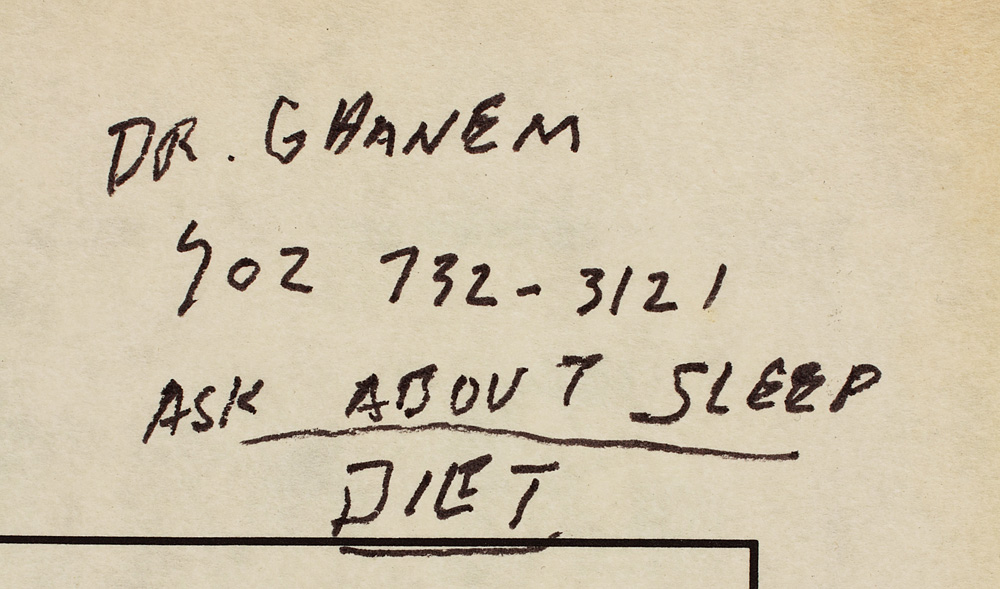 DR. GHANEM
902 732-3121
ASK ABOUT SLEEP
DIET